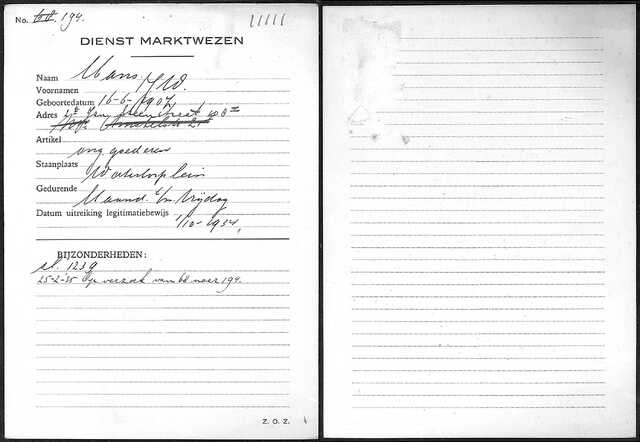 No. 194.
DIENST MARKTWEZEN
Naam Mans
Voornamen J W.
Geboortedatum 16-6-1907
Adres
Artikel ong goederen
Staanplaats Waterlooplein
Gedurende Maand. t/m Vrijdag
Datum uitreiking legitimatiebewijs 1/10-1934.
BIJZONDERHEDEN:
1239
25-2-35 Op verzoek van naar 194.
Z. O. Z.